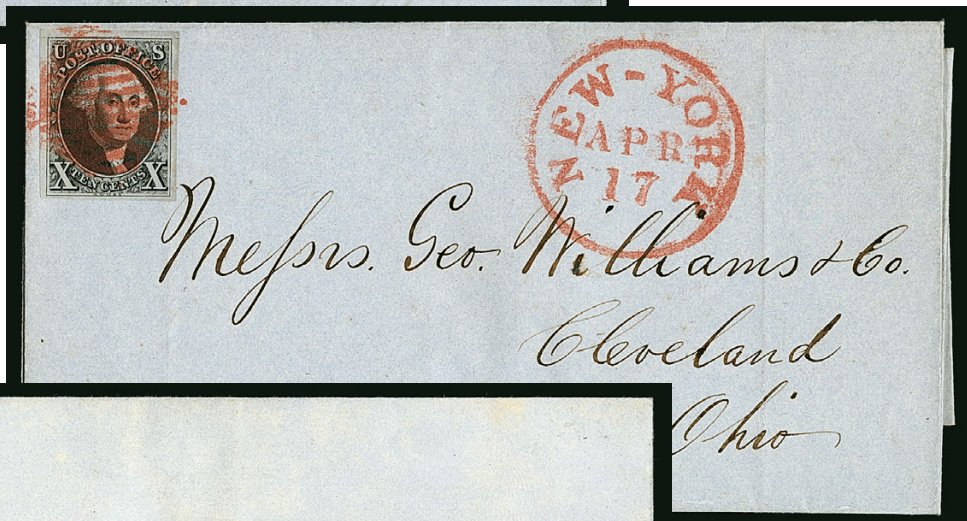 U S
POST OFFICE
X TEN CENTS X
NEW-YORK
APR
17
Messrs. Geo. Williams & Co.
Cleveland
Ohio